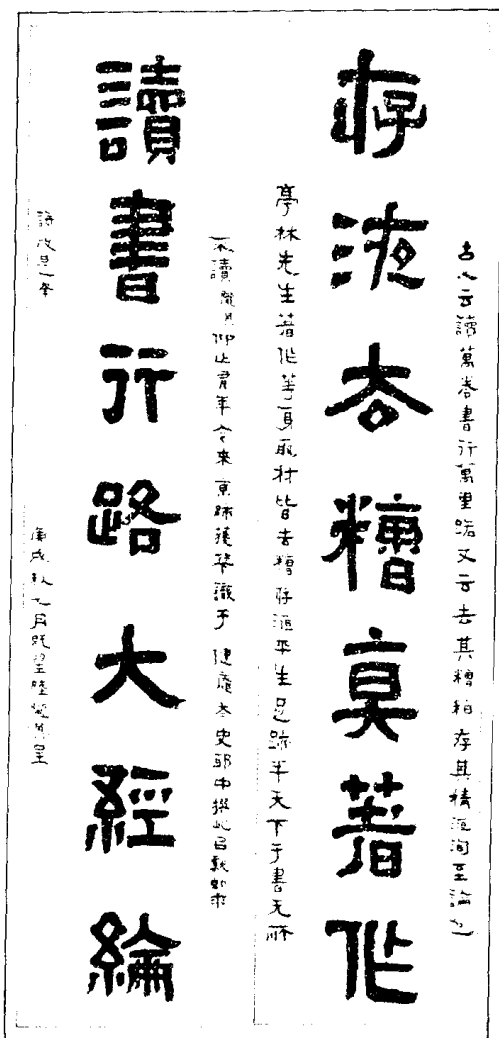 古人云讀萬卷書行萬里路又云去其糟粕存其精液洵至論也
存液去糟真著作
亭林先生著作等身取材皆去糟存液平生足跡半天下于書无所
不讀隴其仰止有年今來京師獲識于 健庵太史邸中撰此呈教如求
讀書行路大經綸
改是幸 庚戌秋七月既望陸隴其呈